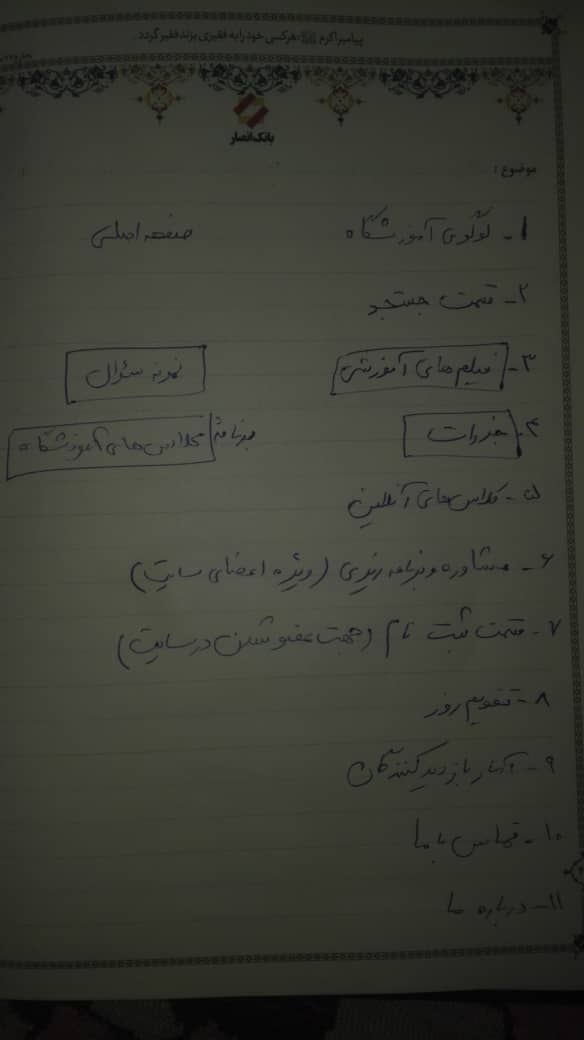 پیامبر اکرم ﷺ: هر کس خود را به فقیری بزند فقیر گردد.
بانک انصار
موضوع:
۱- لوگوی آموزشگاه صفحه اصلی
۲- قسمت جستجو
۳- فیلم های آموزشی نمونه سؤال
۴- جزوات برنامه کلاس های آموزشگاه
۵- کلاس های آنلاین
۶- مشاوره و برنامه ریزی (ویژه اعضای سایت)
۷- قسمت ثبت نام (جهت عضو شدن در سایت)
۸- تقویم روز
۹- آمار بازدیدکنندگان
۱۰- تماس با ما
۱۱- درباره ما